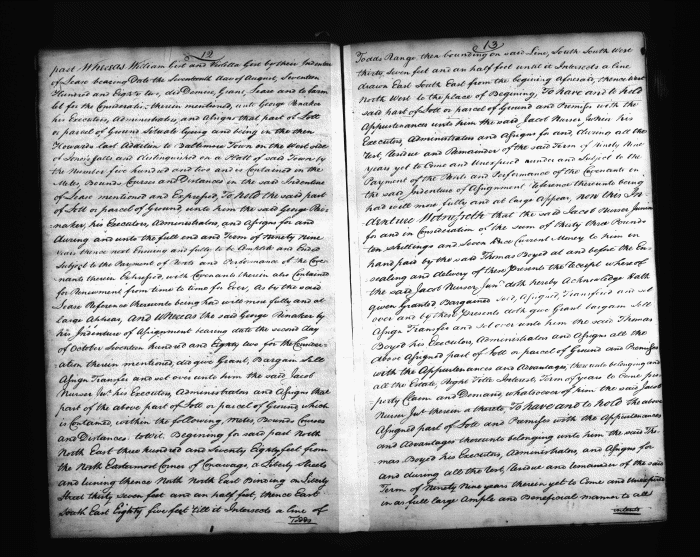 12
part Whereas William Gist and Violetta Gist by their Indenture
of Lease bearing Date the Seventeenth day of August, Seventeen
Hundred and Eighty two, did Demise, Grant, Lease and to farm
let for the Consideration therein mentioned, unto George Penaker
his Executors, Administrators, and Assigns that part of Lott
or parcel of Ground Situate lying and being in the then
Howards last Addition to Baltimore Town on the West side
of Jones's falls and distinguished on a Platt of said Town by
the Number five hundred and two and is Contained in the
Metes, Bounds, Courses and Distances in the said Indenture
of Lease mentioned and Expressed, To hold the said part
of Lott or parcel of Ground, unto him the said George Pena-
maker, his Executors, Administrators, and Assigns for and
during and unto the full end and Term of Ninety Nine
Years thence next Ensuing and fully to be Compleat and Ended
Subject to the Payment of Rents and Performance of the Cove-
nants therein Expressed, with Covenants therein also Contained
for Renewment from time to time for Ever, As by the said
Lease Reference thereunto being had will more fully and at
large Appear, And Whereas the said George Penaker by
his Indre of Assignment bearing date the second day
of October Seventeen hundred and Eighty two for the Consider-
ation therein mentioned, did give Grant, Bargain Sell
Assign Transfer and set over unto him the said, Jacob
Nusser Junr his Executors, Administrators and Assigns that
part of the above part of Lott or parcel of Ground which
is Contained, within the following, Metes, Bounds Courses
and Distances: towit. Begining for said part North
North East three hundred and Seventy Eight feet from
the North Easternmost Corner of Conawago, a Liberty Streets
and runing thence North North East Binding on Liberty
Street thirty seven feet and an half feet, thence East
South East Eighty five feet till it Intersects a line of
Todds
13
Todds Range, then bounding on said Line, South South West
thirty Seven feet and an half feet until it Intersects a line
drawn East South East from the begining aforesaid, thence West
North West to the place of Begining, To have and to hold
said part of Lott or parcel of Ground and Premises with the
Appurtenances unto him the said Jacob Nusser Junior his
Executors, Administrators and Assigns for and, during all the
Rest, Residue and Remainder of the said Term of Ninety Nine
years yet to Come and Unexpired under and Subject to the
Payment of the Rents and Performance of the Covenants in
the said Indenture of Assignment Reference thereunto being
had will more fully and at large Appear, now this In-
denture Witnesseth that the said Jacob Nusser Junior
for and in Consideration of the sum of thirty three Pounds
ten Shillings and Seven Pence Current Money to him in
hand paid by the said Thomas Boyed at and before the En-
sealing and delivery of these Presents the Receipt whereof
the said Jacob Nusser Junr doth hereby Acknowledge hath
given Granted Bargained Sold, Assigned, Transfered and set
over and by these Presents doth give Grant bargain Sell
Assign Transfer and Set over unto him the said Thomas
Boyed his Executors, Administrators and Assigns all the
above Assigned part of Lott or parcel of Ground and Premises
with the Appurtenances and Advantages, thereunto belonging and
all the Estate, Right Title Interest, Term of years to Come pro-
perty Claim and Demand, whatsoever of him the said Jacob
Nusser Junr therein or thereto. To have and to hold the above
Assigned part of Lott and Premises with the Appurtenances
and Advantages thereunto belonging unto him the said Tho-
mas Boyed his Executors, Administrators, and Assigns for
and during all the Rest, Residue and remainder of the said
Term of Ninety Nine years therein yet to Come and Unexpired
in as full large Ample and Beneficial manner to all
intents